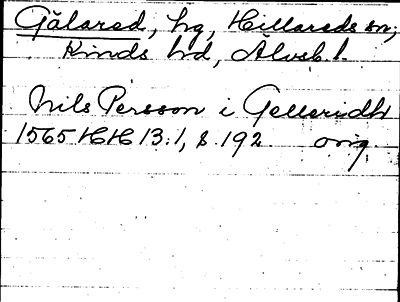 Gälared, hg, Hillareds sn,
Kinds hd, Älvsb. l.
Nils Persson i Gelleridh
1565 HH 13:1, s. 192 orig.